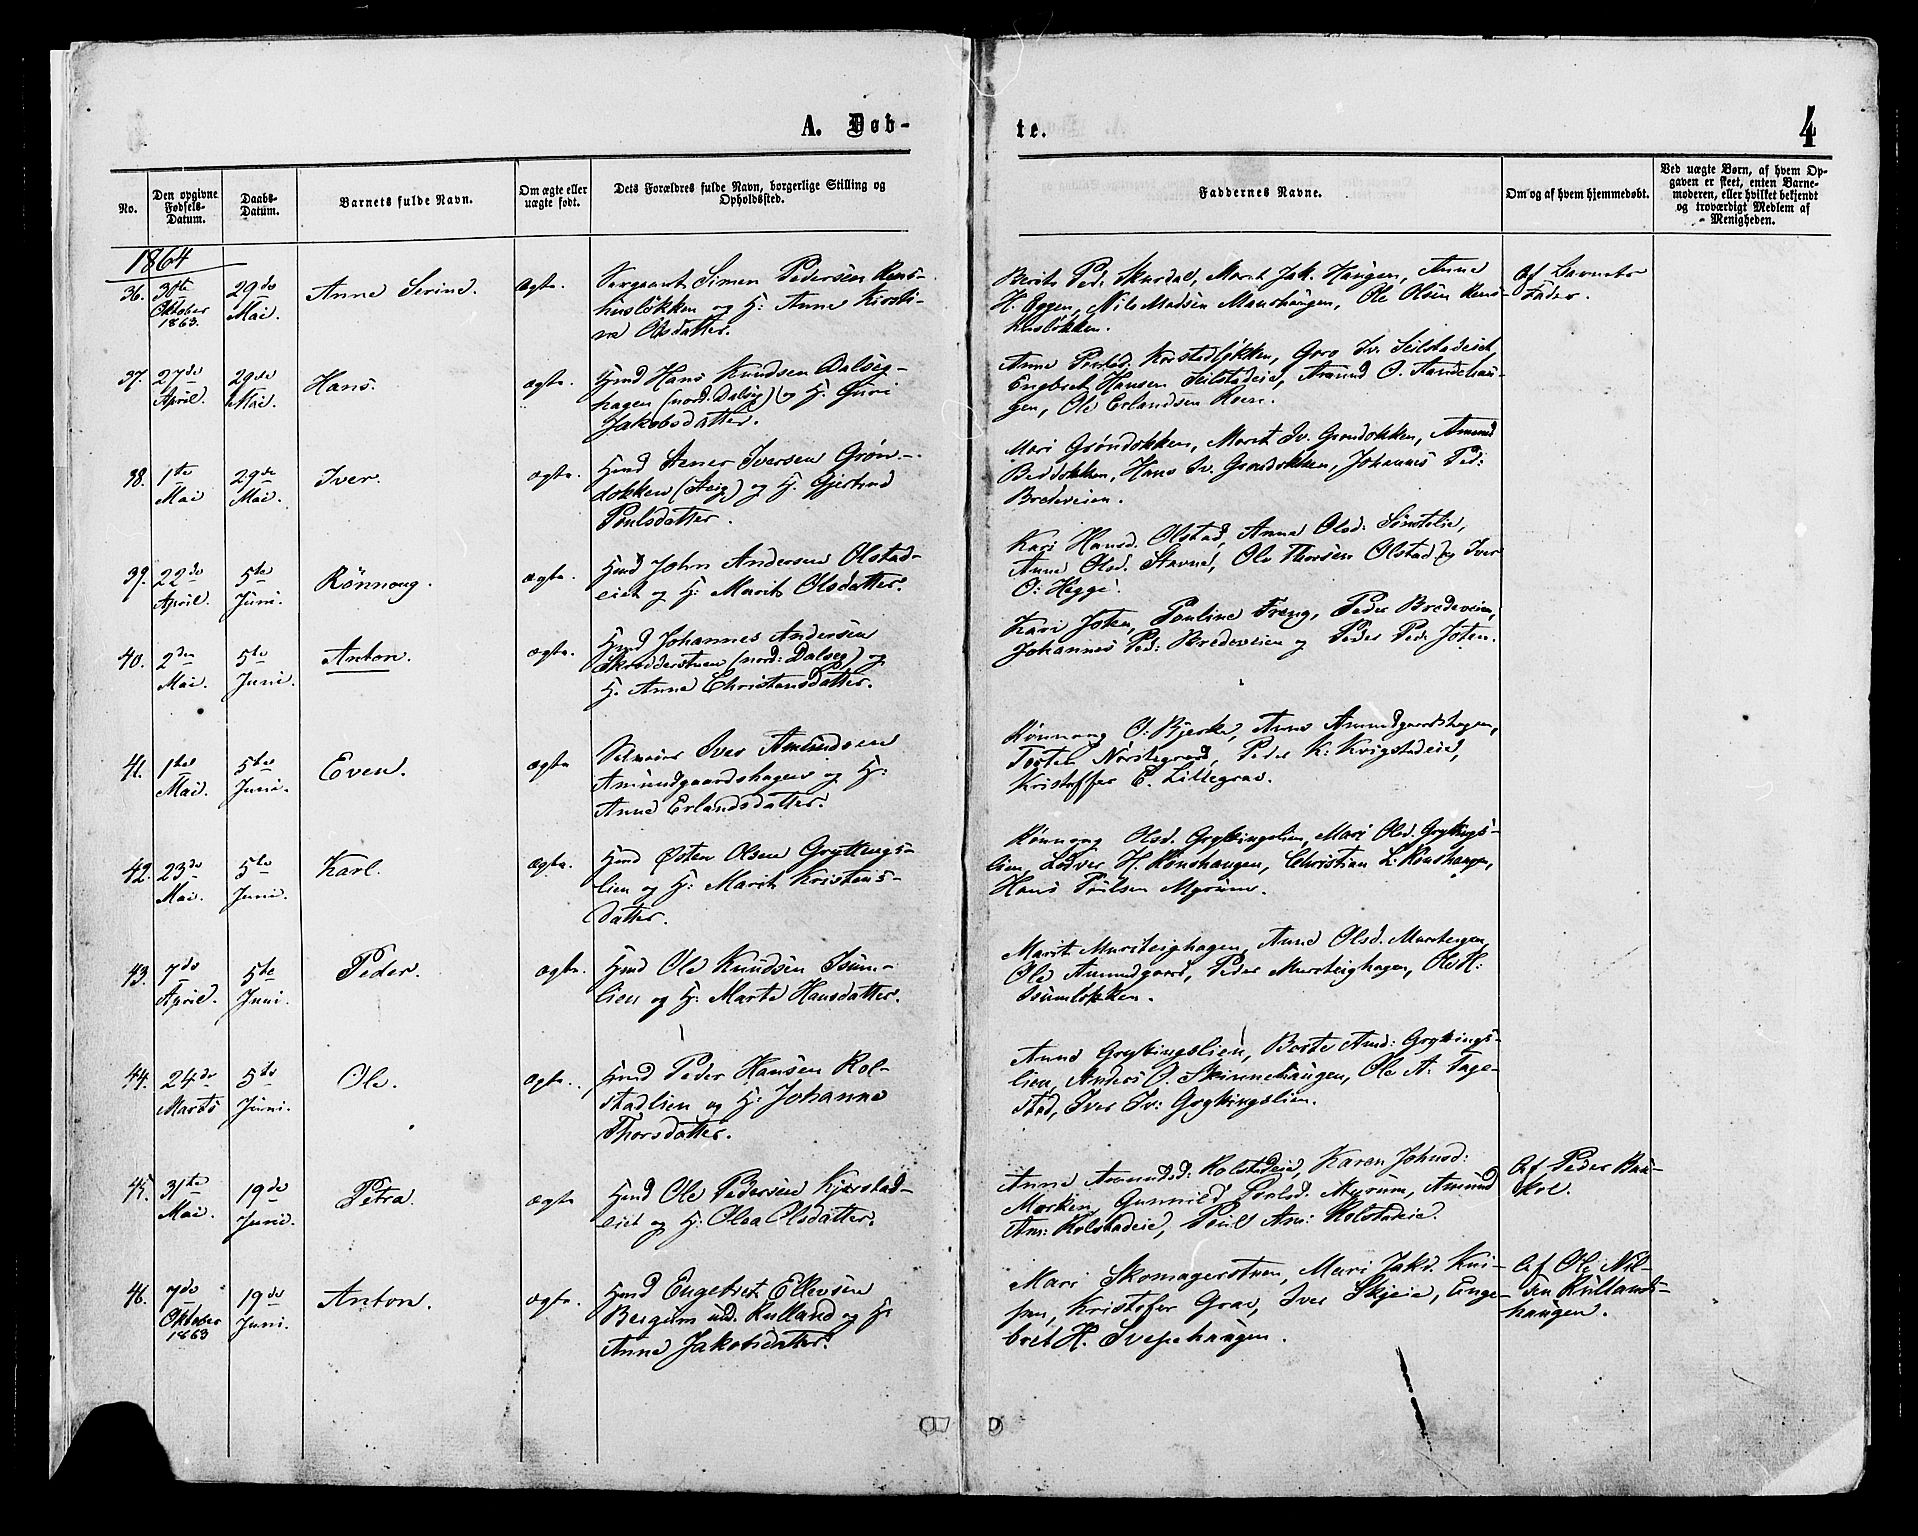 A. Døb-
te.
4
No.
Den opgivne Fødsels-Datum.
Daabs-Datum.
Barnets fulde Navn.
Om ægte eller uægte født.
Dets Forældres fulde Navn, borgerlige Stilling og Opholdssted.
Faddernes Navne.
Om og af hvem hjemmedøbt.
Ved uægte Børn, af hvem Opgaven er skeet, enten Barnemoderen, eller hvilket bekjendt og troværdigt Medlem af Menigheden.
1864
36. 30te Oktober 1863. 29de Mai Anne Serine. Ægte.
Simen Pedersen Rens-
husløkken og H: Anne Kirsti-
ne Olsdatter.
Berit Ped. Skurdal, Marit Jak. Haugen, Anne
H. Eggen, Nils Madsen Maushaugen, Ole Olsen Rens-
husløkken.
Af Barnets
Fader.
37. 27de April. 29de Mai. Hans. ægte.
Hmd Hans Knudsen Dalseg-
hagen (nord. Dalseg) og H. Guri
Jakobsdatter.
Anne Korstadløkken, Goro Iv. Seilstadeiet
Engbret Hansen Seilstadeie, Amund O.
gen, Ole Erlandsen Roen.
38. 1ste Mai 29de Mai. Iver. ægte.
Hmd Stener Iversen Grøn-
dokken (Steig) og H. Gjertrud
Poulsdatter.
Mari Grøndokken, Marit Iv. Grøndokken, Amund
Hans Iv. Grøndokken, Johannes Ped:
Bredeveien.
39. 22de April. 5te Juni. Rønnoug. ægte.
Hmd John Andersen Olstad-
eiet og H: Marit Olsdatter.
Kari Hansd. Olstad, Anne Olsd. Sønstelie,
Anne Olsd. Stavne, Ole Thorsen Olstad og Iver
O: Hegge.
40. 2den Mai. 5te Juni. Anton. ægte.
Hmd Johannes Andersen
Skrædderstuen (nord: Dalseg) og
H. Anne Christensdatter.
Kari Joten, Pouline Freng, Peder Bredeveien,
Johannes Ped: Bredeveien og Peder Ped. Joten.
41. 1ste Mai. 5te Juni. Even. ægte
Iver Amundsen
Amundgaardshagen og H:
Anne Erlandsdatter.
Rønnoug O: Bjerke, Anne Amundgaardshagen,
Torsten Nørstegrav, Peder K: Kvigstadeie,
Kristoffer E. Lillegrav.
42. 23de Mai. 5te Juni. Karl. ægte.
Hmd Østen Olsen Grytingsli-
lien og H: Marit Kristens-
datter.
Rønnoug Olsd. Grytingslien, Mari Olsd. Grytings-
lien, Lodver H. Rønshaugen, Christian L: Rønshaugen,
Hans Poulsen Myrum.
43. 7de April. 5te Juni. Peder. ægte.
Hmd Ole Knudsen Isum-
lien og H: Marte Hansdatter.
Marit Mursteighagen, Anne Olsd. Mursteigen
Ole Amundgaard, Peder Mursteighagen, Ole H:
Isumløkken.
44. 24de Marts 5te Juni. Ole. ægte.
Hmd Peder Hansen Kol-
stadlien og H: Johanne
Thorsdatter.
Anne Grytingslien, Borte Amd: Grytings-
lien, Anders O. Skinnehaugen, Ole A: Tage-
stad, Iver Iv: Grytingslien.
45. 31te Mai. 19de Juni. Petra. ægte
Hmd Ole Pedersen Kjørstad-
eiet og H: Olea Olsdatter.
Anne Amundsd: Kolstadeie, Karen Johnsd:
Morken, Gunnild Poulsd. Myrum, Amund
Am: Kolstadeie, Poul Am: Kolstadeie.
Af Peder Bau-
kol.
46. 7de Oktober 1863 19de Juni. Anton. ægte.
Hmd Engebret Ellevsen
Bergum und. Rulland og H:
Anne Jakobsdatter.
Mari Skomagerstuen, Mari Jakd. Kni-
pen, Kristofer Grav, Iver Skjeie, Enge-
bret H. Svepehaugen.
Af Ole Nil-
sen Rullands-
haugen.